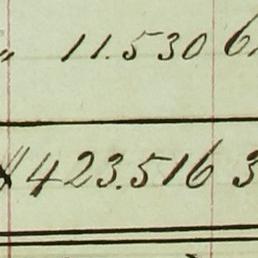 " 11.530 6
$423.516 3